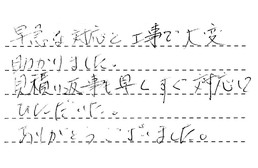 早急な対応と工事で大変
助かりました。
見積り返事も早くすぐ対応して
いただいた。
ありがとうございました。